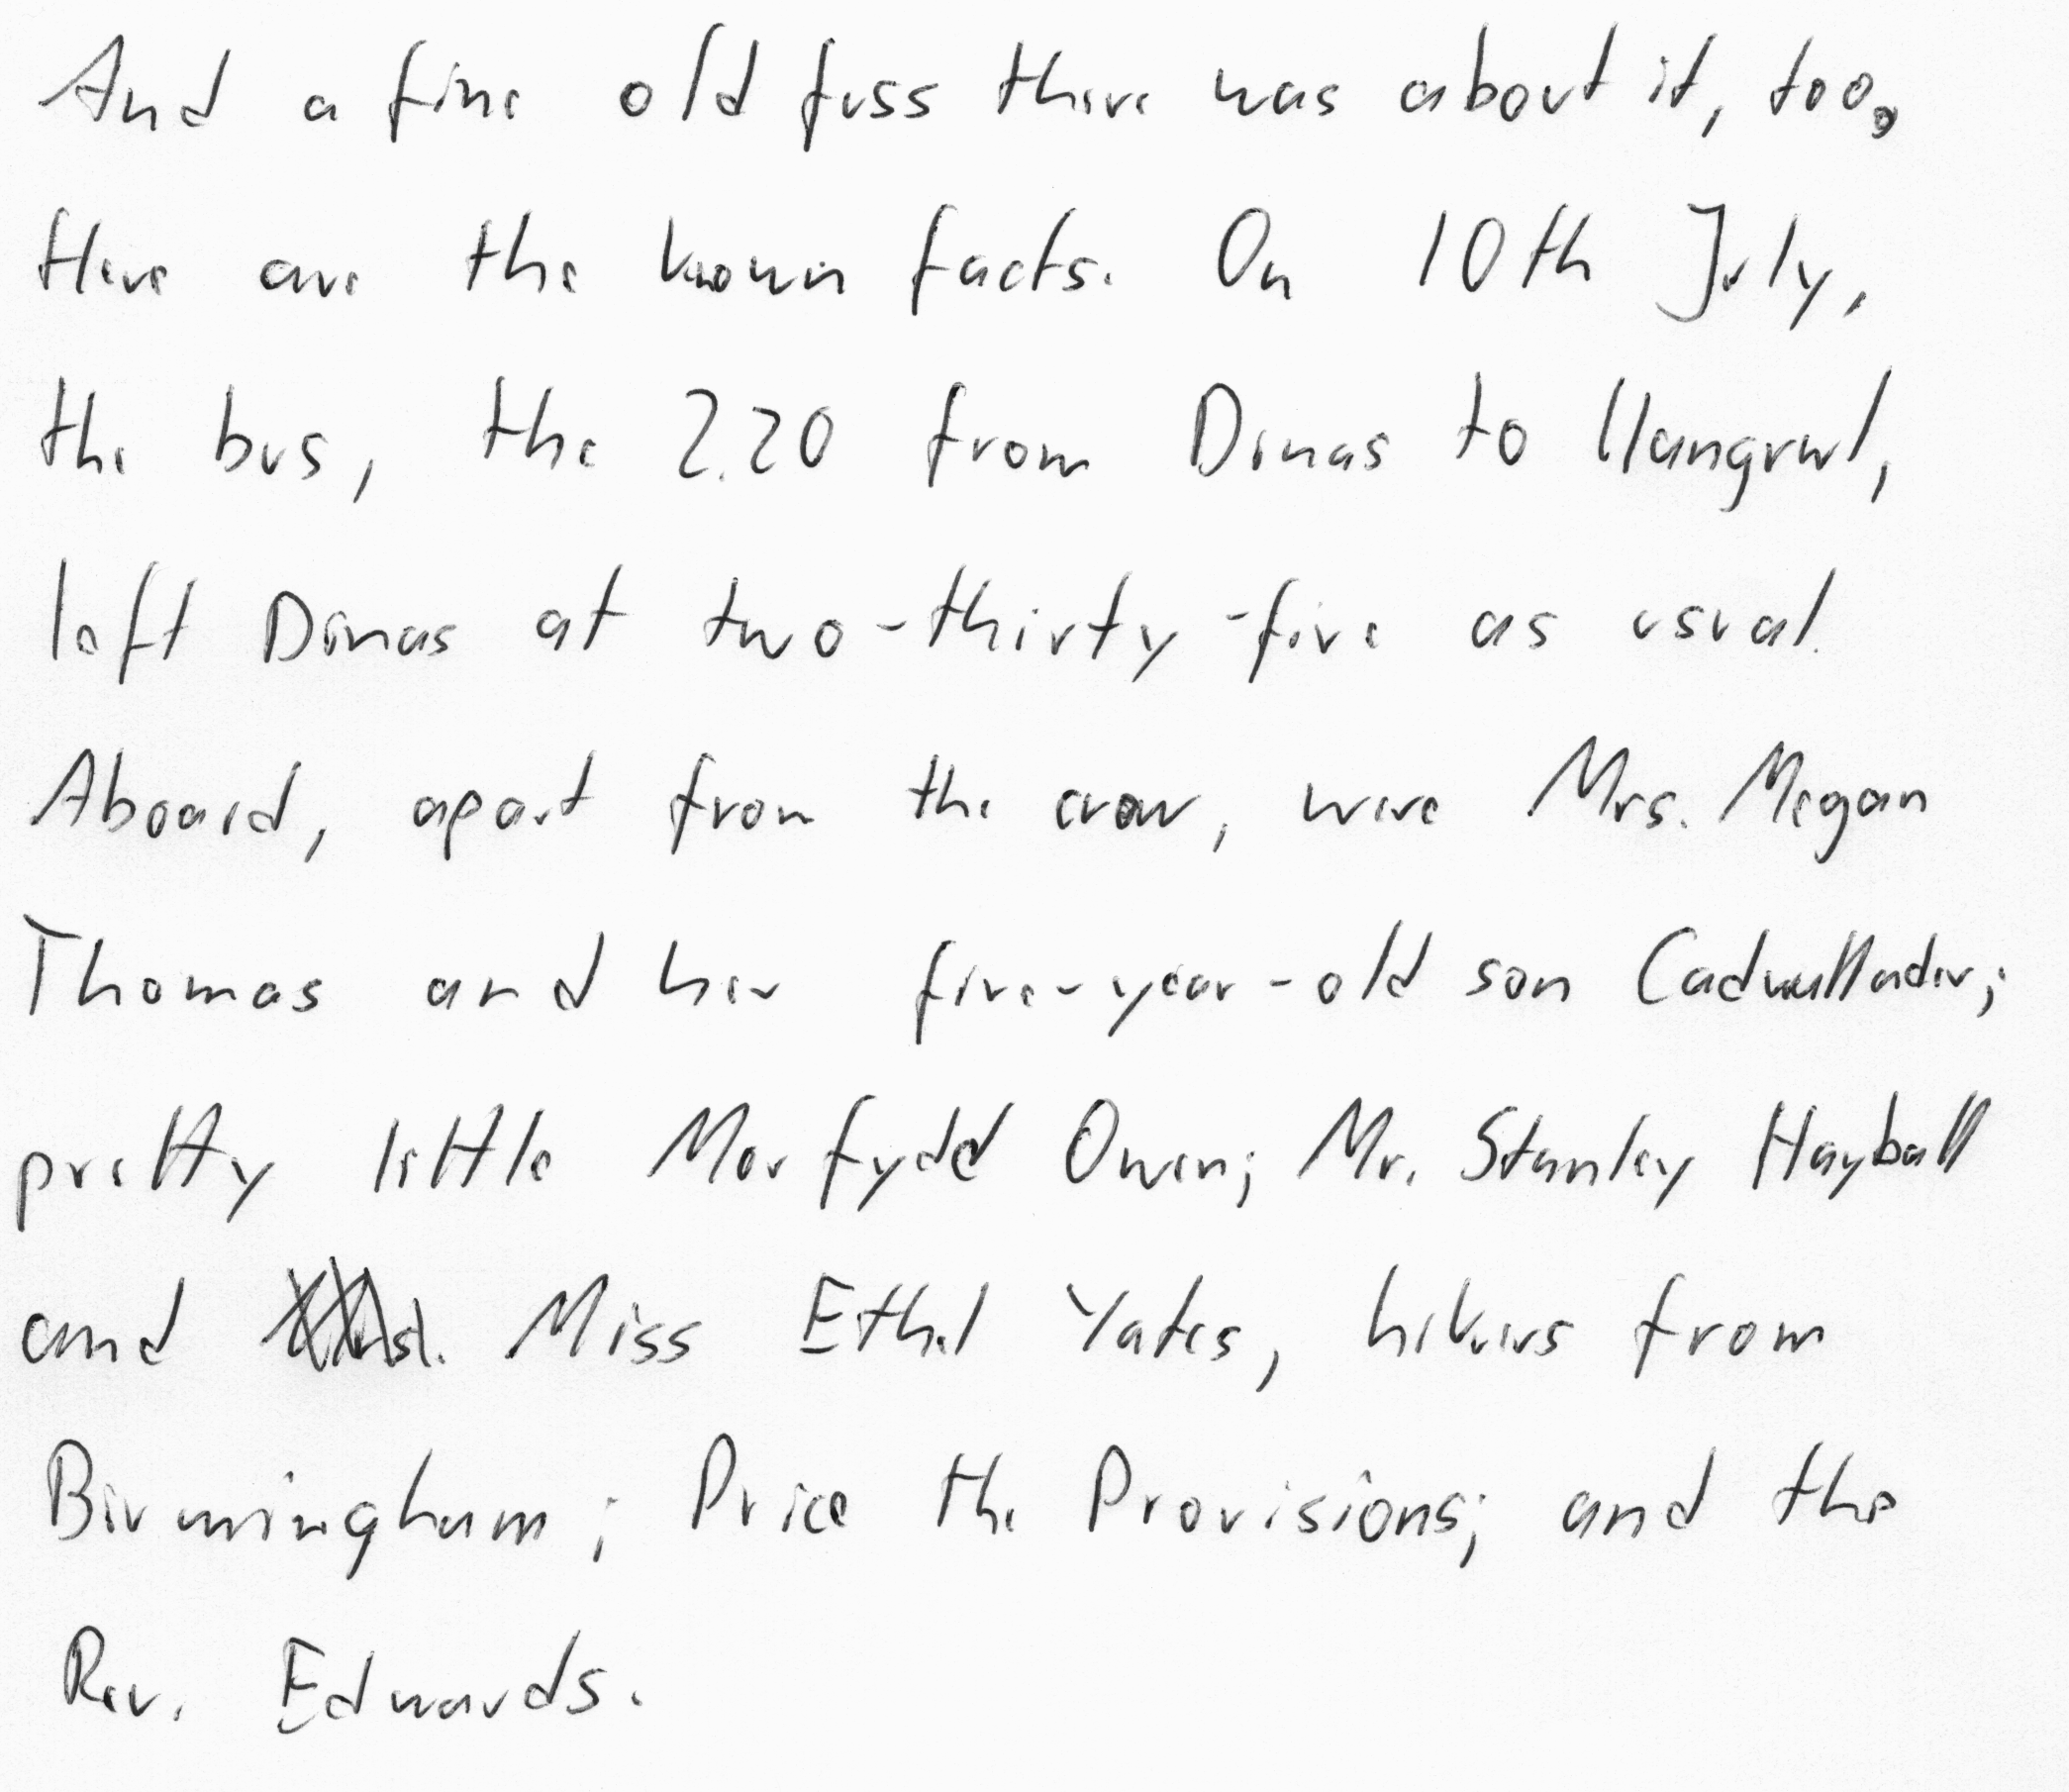 And a fine old fuss there was about it, too.
Here are the known facts. On 10th July,
the bus, the 2.20 from Dinas to Llangrwl,
left Dinas at two-thirty-five as usual.
Aboard, apart from the crew, were Mrs. Megan
Thomas and her five-year-old son Cadwallader;
pretty little Morfydd Owen; Mr. Stanley Hayball
and Miss Ethel Yates, hikers from
Birmingham; Price the Provisions; and the
Rev. Edwards.